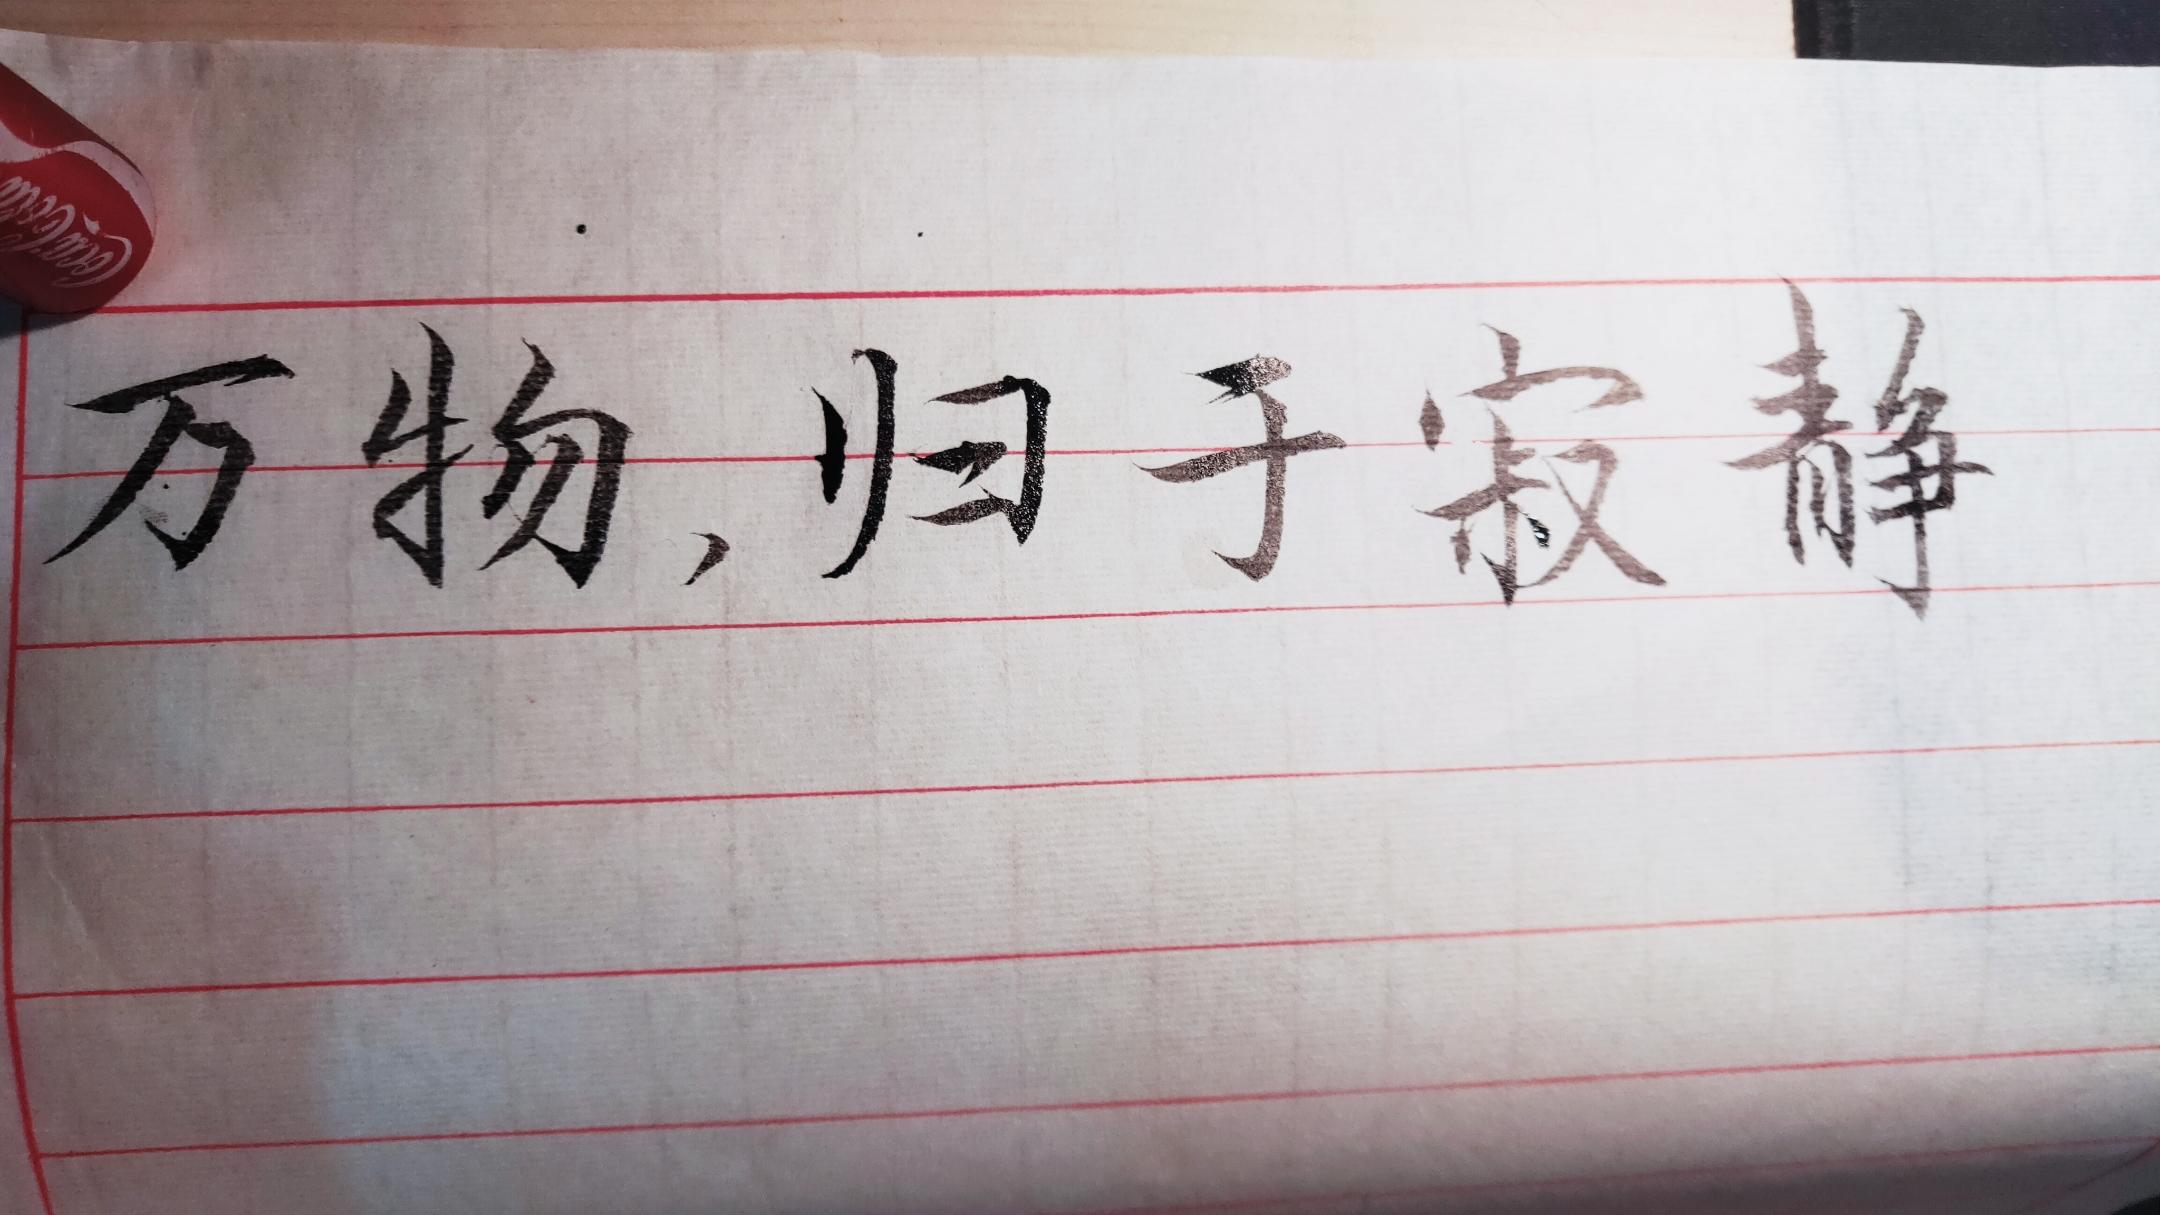 万物，归于寂静
Coca-Cola